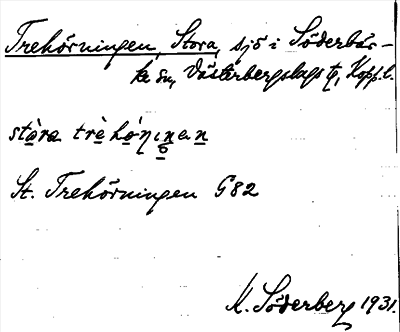 Trehörningen, Stora, sjö i Söderbär-
ke sn, Västerbergslags tg, Kopp. l.
stòra trèhó̤ṇıṇan
St. Trehörningen G82
M. Söderberg 1931.